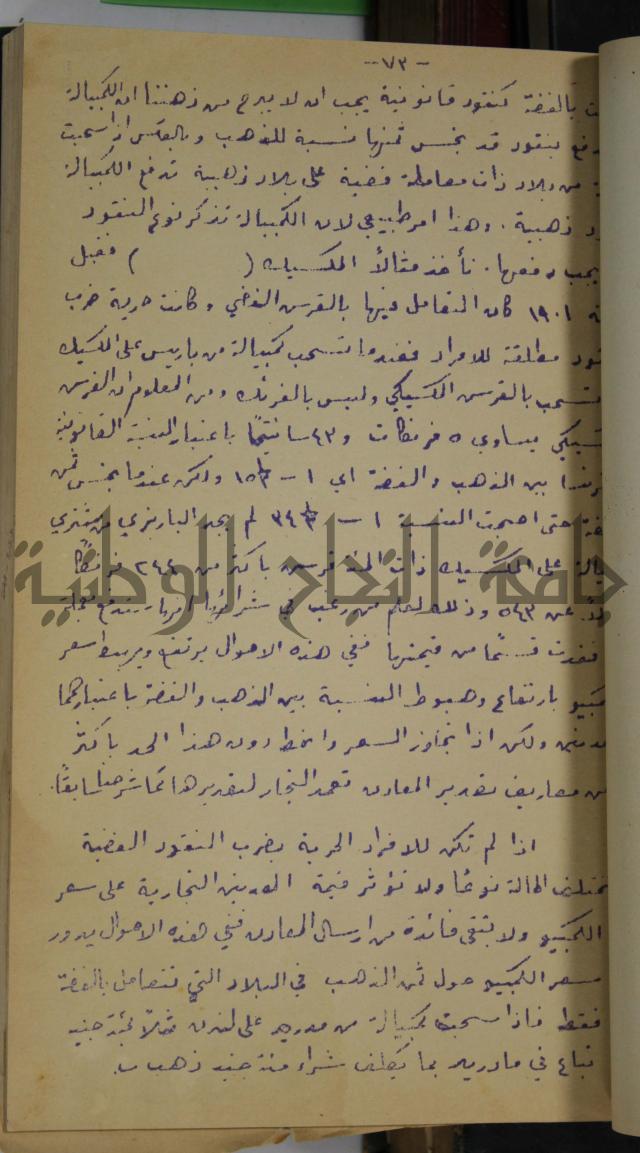 -٧٣-
بالفضة كنقود قانونية يجب ان لا يبرح من ذهننا ان الكمبيالة
تدفع بنقود قد بخس ثمنها نسبة للذهب وبالعكس اذا سحبت
من بلاد ذات معاملة فضية على بلاد ذهبية تدفع الكمبيالة
ذهبية . وهذا امر طبيعي لان الكمبيالة تذكر نوع النقود
يجب دفعها . نأخذ مثالاً المكسيك ( ) فقبل
١٩٠١ كان التعامل فيها بالقرس الفضي وكانت حرية ضرب
مطلقة للافراد فعندما تسحب كمبيالة من باريس على المكسيك
تسحب بالقرس المكسيكي وليس بالفرنك ومن المعلوم ان القرس
يساوي ٥ فرنكات و٤٣ سانتيمًا باعتبار النسبة القانونية
بين الذهب والفضة اي ١ – ١٥ ولكن عندما بخس ثمن
حتى اصبحت النسبة ١ – ٣٤ لم يجد الباريزي من يشتري
على المكسيك ذات المئة قرس باكثر من ٢٤٤ فرنكًا
عن ٥٤٣ وذلك لعلم من رغب في شرائها انها ستدفع بعملة
فقدت قسمًا من قيمتها ففي هذه الاحوال يرتفع ويهبط سعر
الكمبيو بارتفاع وهبوط النسبة بين الذهب والفضة باعتبارهما
ولكن اذا تجاوز السعر وانحط دون هذا الحد باكثر
من مصاريف تصدير المعادن تعمد التجار لتصديرها كما شرحنا سابقًا.
اذا لم تكن للافراد الحرية بضرب النقود الفضية
تختلف الحالة نوعًا ولا تؤثر قيمة المعدنين التجارية على سعر
الكمبيو ولا يبقى فائدة من ارسال المعادن ففي هذه الاحوال يدور
سعر الكمبيو حول ثمن الذهب في البلاد التي تتعامل بالفضة
فقط فاذا سحبت كمبيالة من مدريد على لندن مثلاً بمئة جنيه
تباع في مادريد بما يكلف شراء مئة جنيه ذهب
جامعة النجاح الوطنية